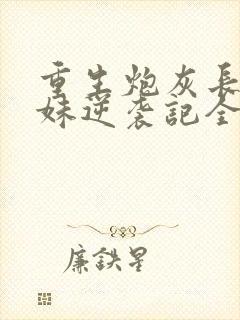 重生炮灰長
妹逆袭記全
廉鉄星